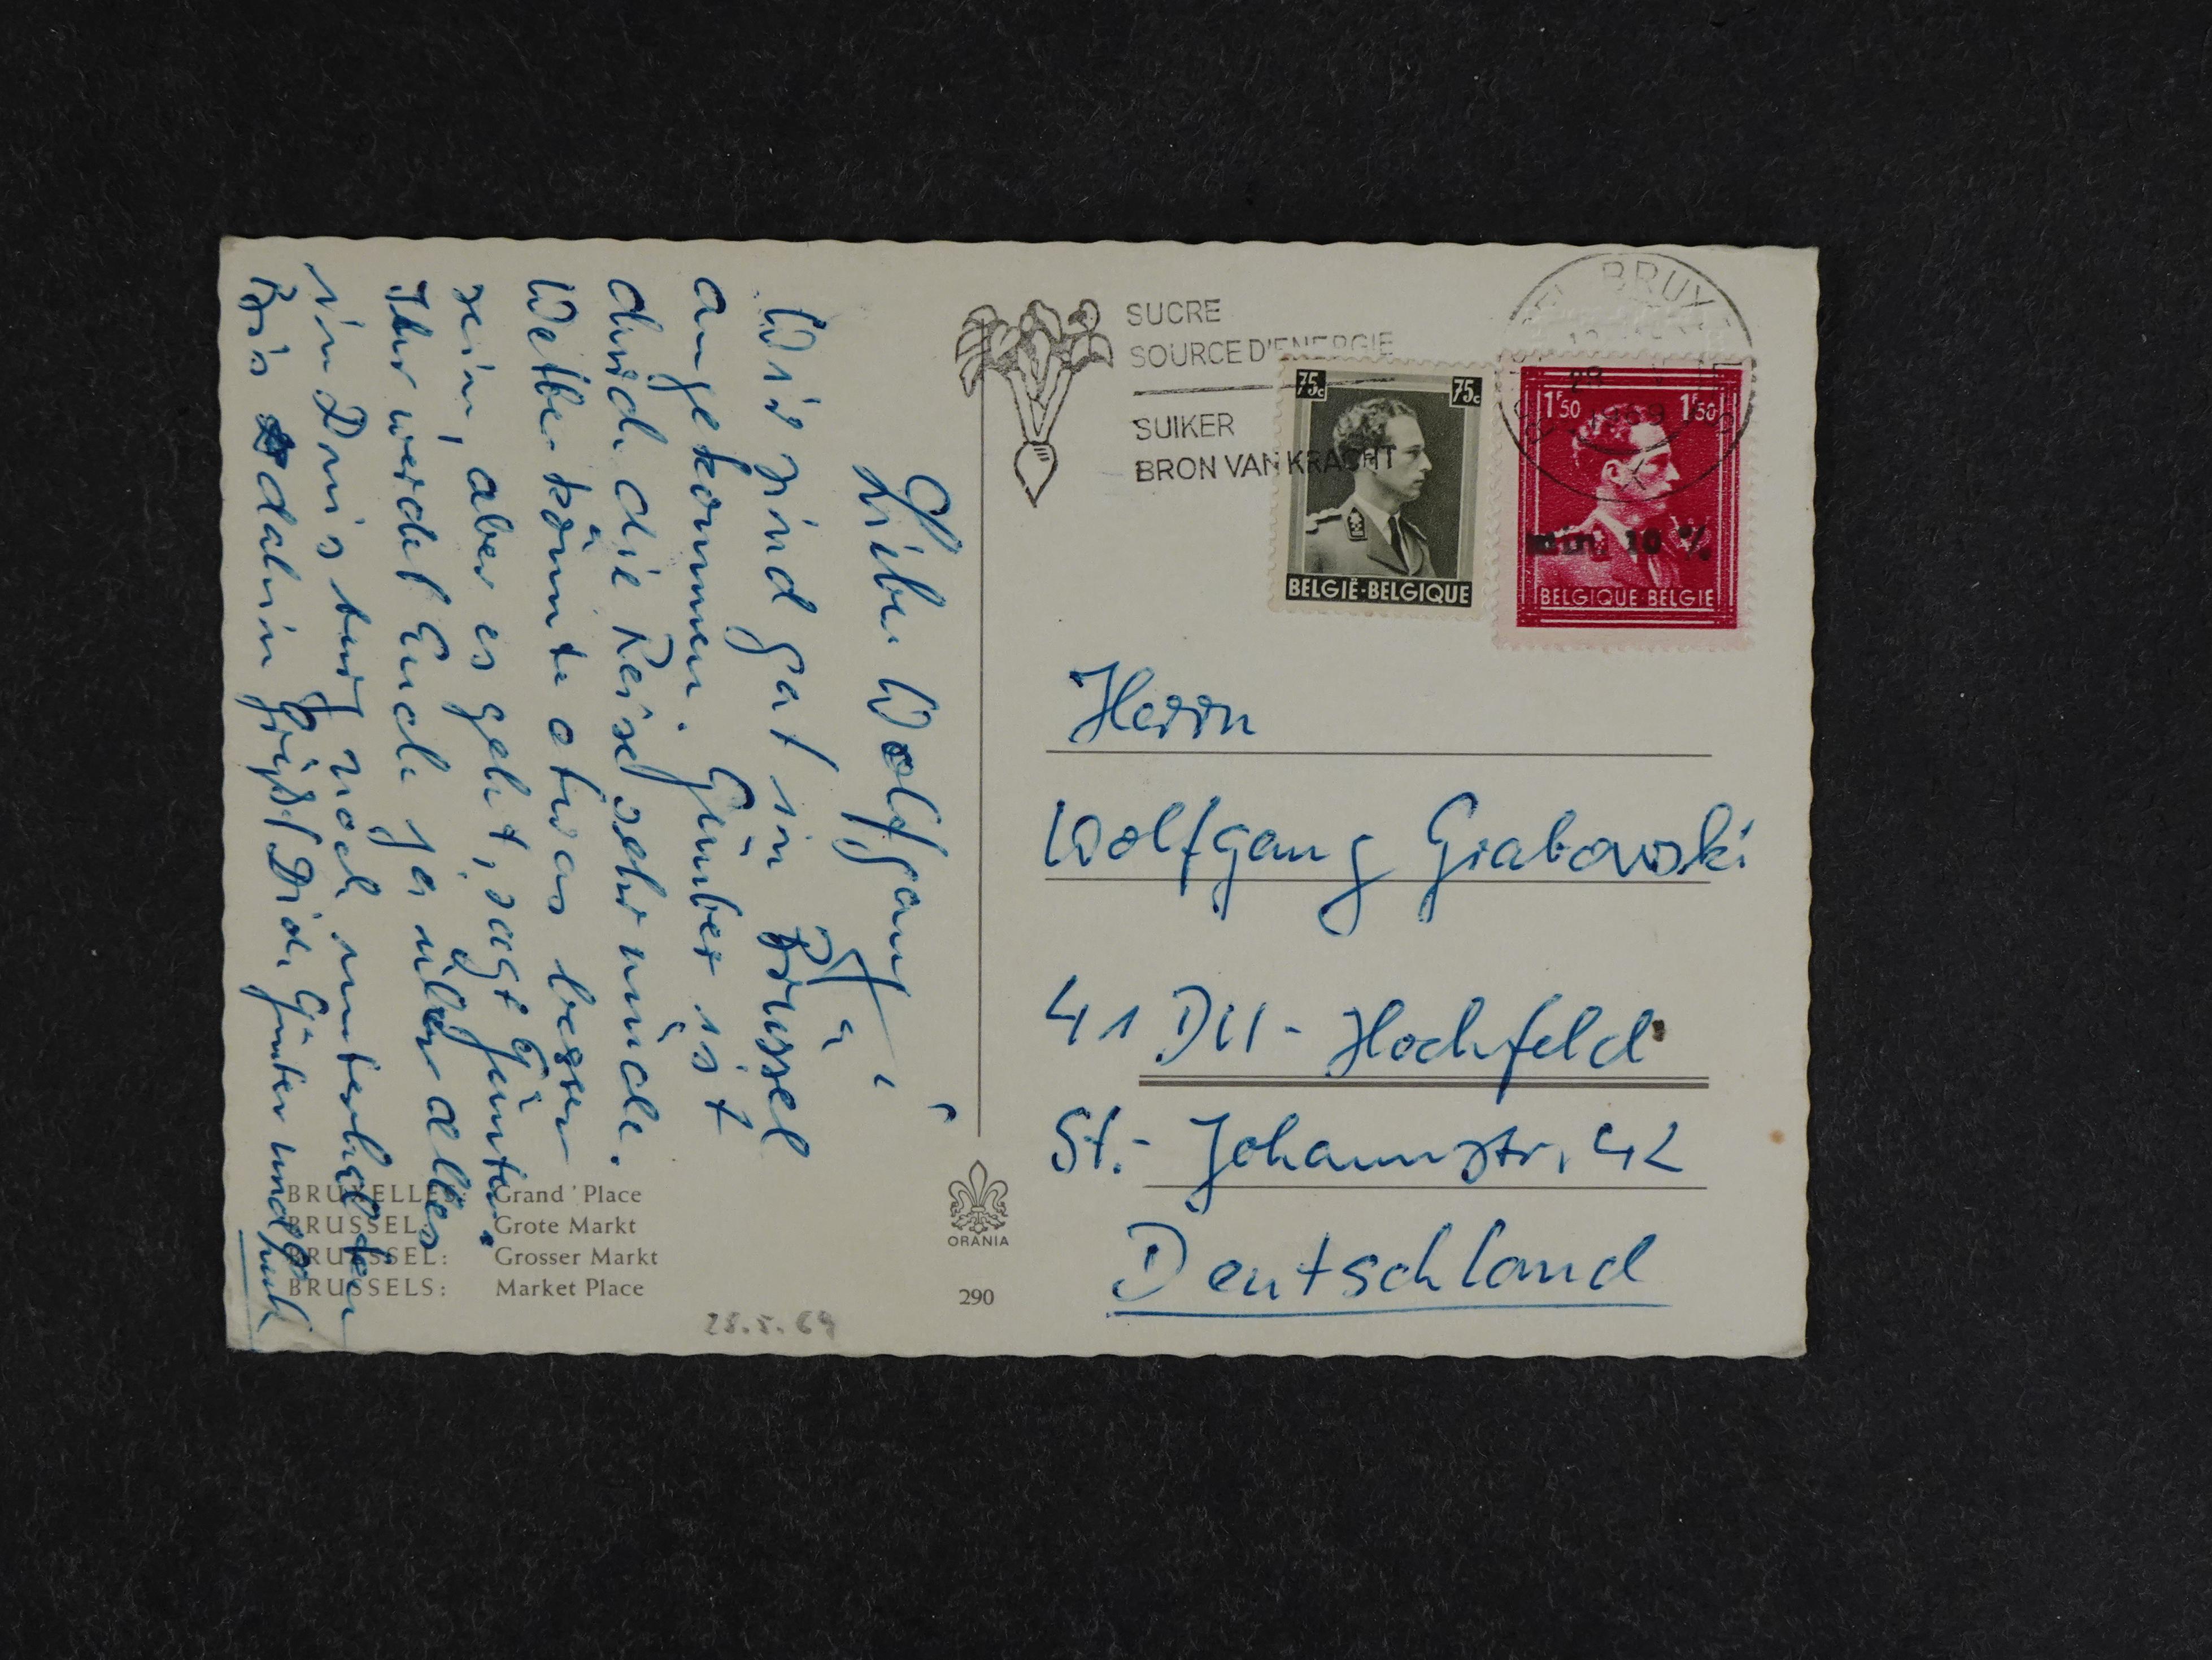 Lieber Wolfgang!
Wir sind gut in Brüssel
angekommen. Günter ist
durch die Reise sehr müde.
Wetter könnte etwas besser
sein, aber es geht, sagt Günter.
Ihr werdet Euch ja über alles
in Duisburg noch unterhalten
Bis dahin grüßt Dich Günter und
BRUXELLES: Grand'Place
BRUSSEL: Grote Markt
BRÜSSEL: Grosser Markt
BRUSSELS: Market Place
28.5.69
ORANIA
290
SUCRE
SOURCE D'ENERGIE
SUIKER
BRON VAN KRACHT
BRUX
28 V
1969
75c 75c
BELGIË-BELGIQUE
1F50 1F50
min. 10 %
BELGIQUE BELGIE
Herrn
Wolfgang Grabowski
41 DU-Hochfeld
St.-Johannstr. 42
Deutschland